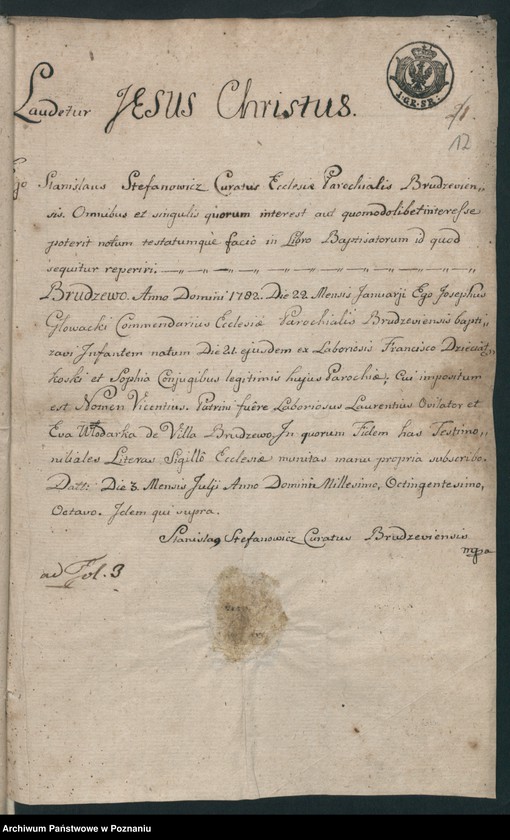 Laudetur JESUS Christus.
1·GR·SR:
21.
12
Ego Stanislaus Stefanowicz Curatus Ecclesiæ Parochialis Brudzevien„
sis. Omnibus et singulis quorum interest aut quomodolibet interesse
poterit notum testatumque facio in Libro Baptisatorum id quod
sequitur reperiri.
Brudzewo. Anno Domini 1782. Die 22. Mensis Januarji Ego Josephus
Glowacki Commendarius Ecclesiæ Parochialis Brudzeviensis bapti„
zavi Infantem natum Die 21. ejusdem ex Laboriosis Francisco
koski et Sophia Conjugibus legitimis hujus Parochiæ, Cui impositum
est Nomen Vicentius. Patrini fuêre Laboriosus Laurentius Ovilator et
Eva Włodarka de Villa Brudzewo. In quorum Fidem has Testimo„
niliales Literas Sigillô Ecclesiæ munitas manu propria subscribo.
Datt: Die 3. Mensis Julji Anno Domini Millesimo, Octingentesimo,
Octavo. Idem qui supra.
Stanislaus Stefanowicz Curatus Brudzeviensis
mpa
ad Fol. 3
Archiwum Państwowe w Poznaniu